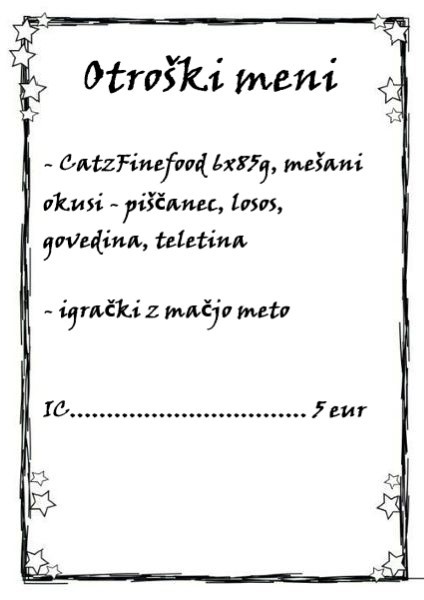 Otroški meni
~ CatzFinefood 6x85g, mešani
okusi ~ piščanec, losos,
govedina, teletina
~ igrački z mačjo meto
IC................................ 5 eur